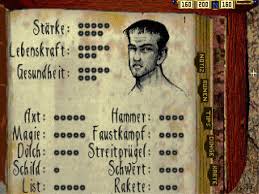 160 200 160
Stärke:
Lebenskraft:
Gesundheit:
NOTIZ
RUNEN
TIPS
KARTE
Axt: Hammer:
Magie: Faustkampf:
Dolch: Streitprügel:
Schild: Schwert:
List: Rakete: